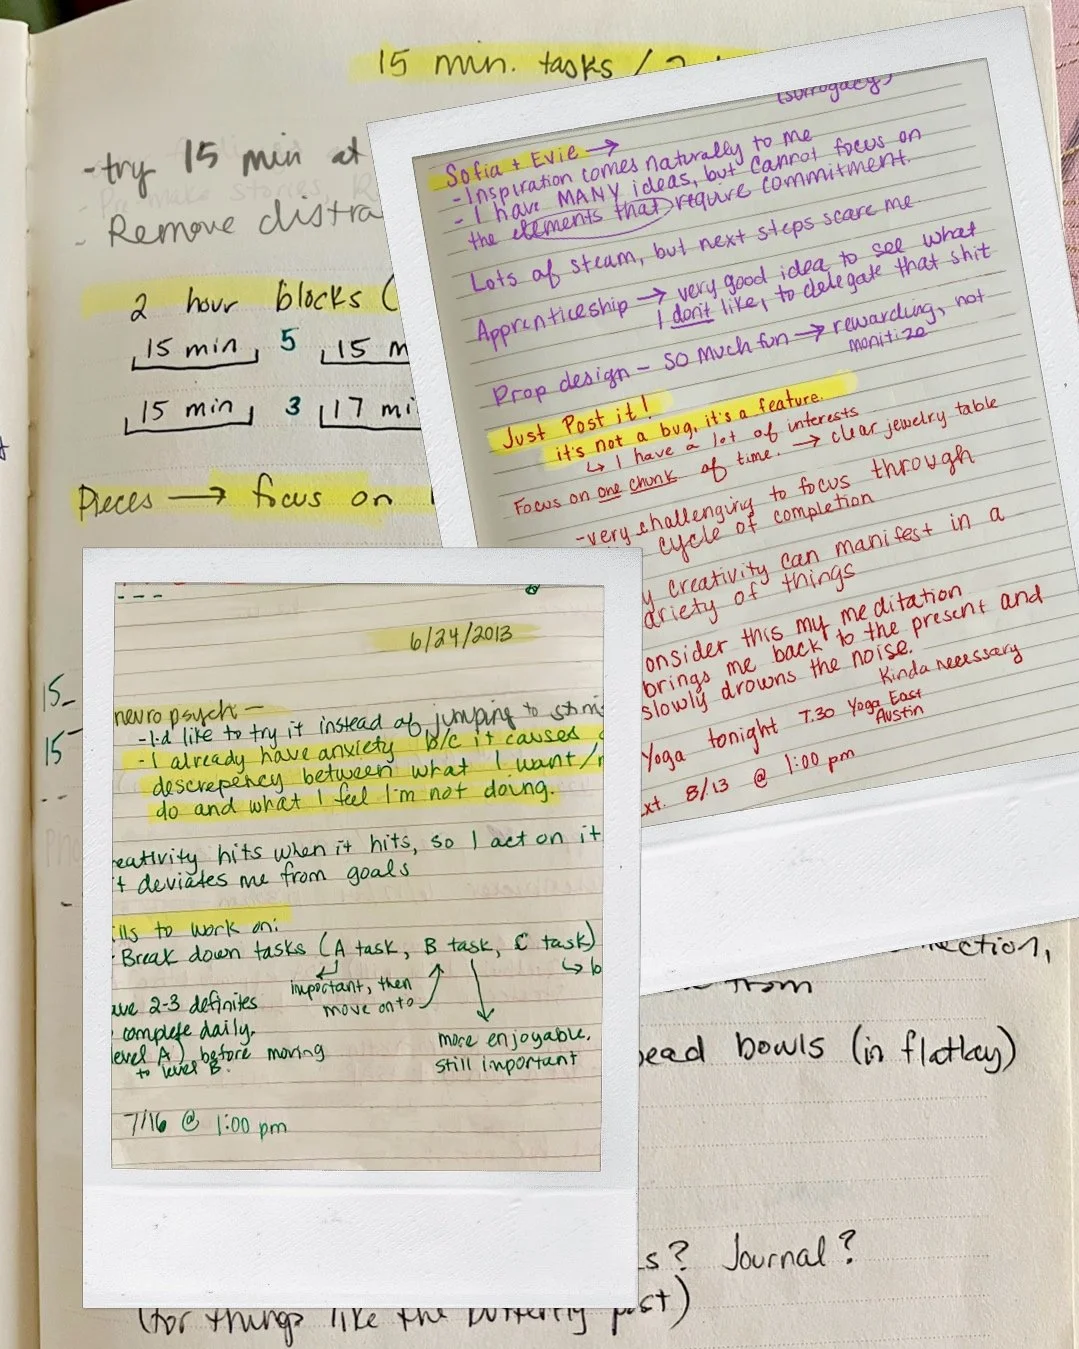 15 min. tasks /
-try 15 min at
- Remove distra
2 hour blocks (
15 min, 5 15 m
15 min, 3 17 mi
Pieces → focus on
15-
15-
(surrogacy)
Sofia + Evie →
- Inspiration comes naturally to me
- I have MANY ideas, but cannot focus on
the elements that require commitment.
Lots of steam, but next steps scare me
Apprenticeship → very good idea to see what
I don't like, to delegate that shit
Prop design - so much fun → rewarding, not
monitize
Just Post it!
it's not a bug, it's a feature.
↳ I have a lot of interests
Focus on one chunk of time. → clear jewelry table
-very challenging to focus through
cycle of completion
y creativity can manifest in a
ariety of things
onsider this my meditation
brings me back to the present and
slowly drowns the noise.
Kinda necessary
Yoga tonight 7:30 Yoga East
Austin
xt. 8/13 @ 1:00 pm
6/24/2013
neuropsych -
-I'd like to try it instead of jumping to stim
- I already have anxiety b/c it causes
descrepency between what I want/
do and what I feel I'm not doing.
reativity hits when it hits, so I act on it
t deviates me from goals
ills to work on:
Break down tasks (A task, B task, C task)
↳ lo
important, then
move onto
ave 2-3 definites
complete daily.
level A) before moving
to level B.
more enjoyable,
still important
7/16 @ 1:00 pm
nection,
from
bead bowls (in flatlay)
s? Journal?
(for things like the butterfly post)